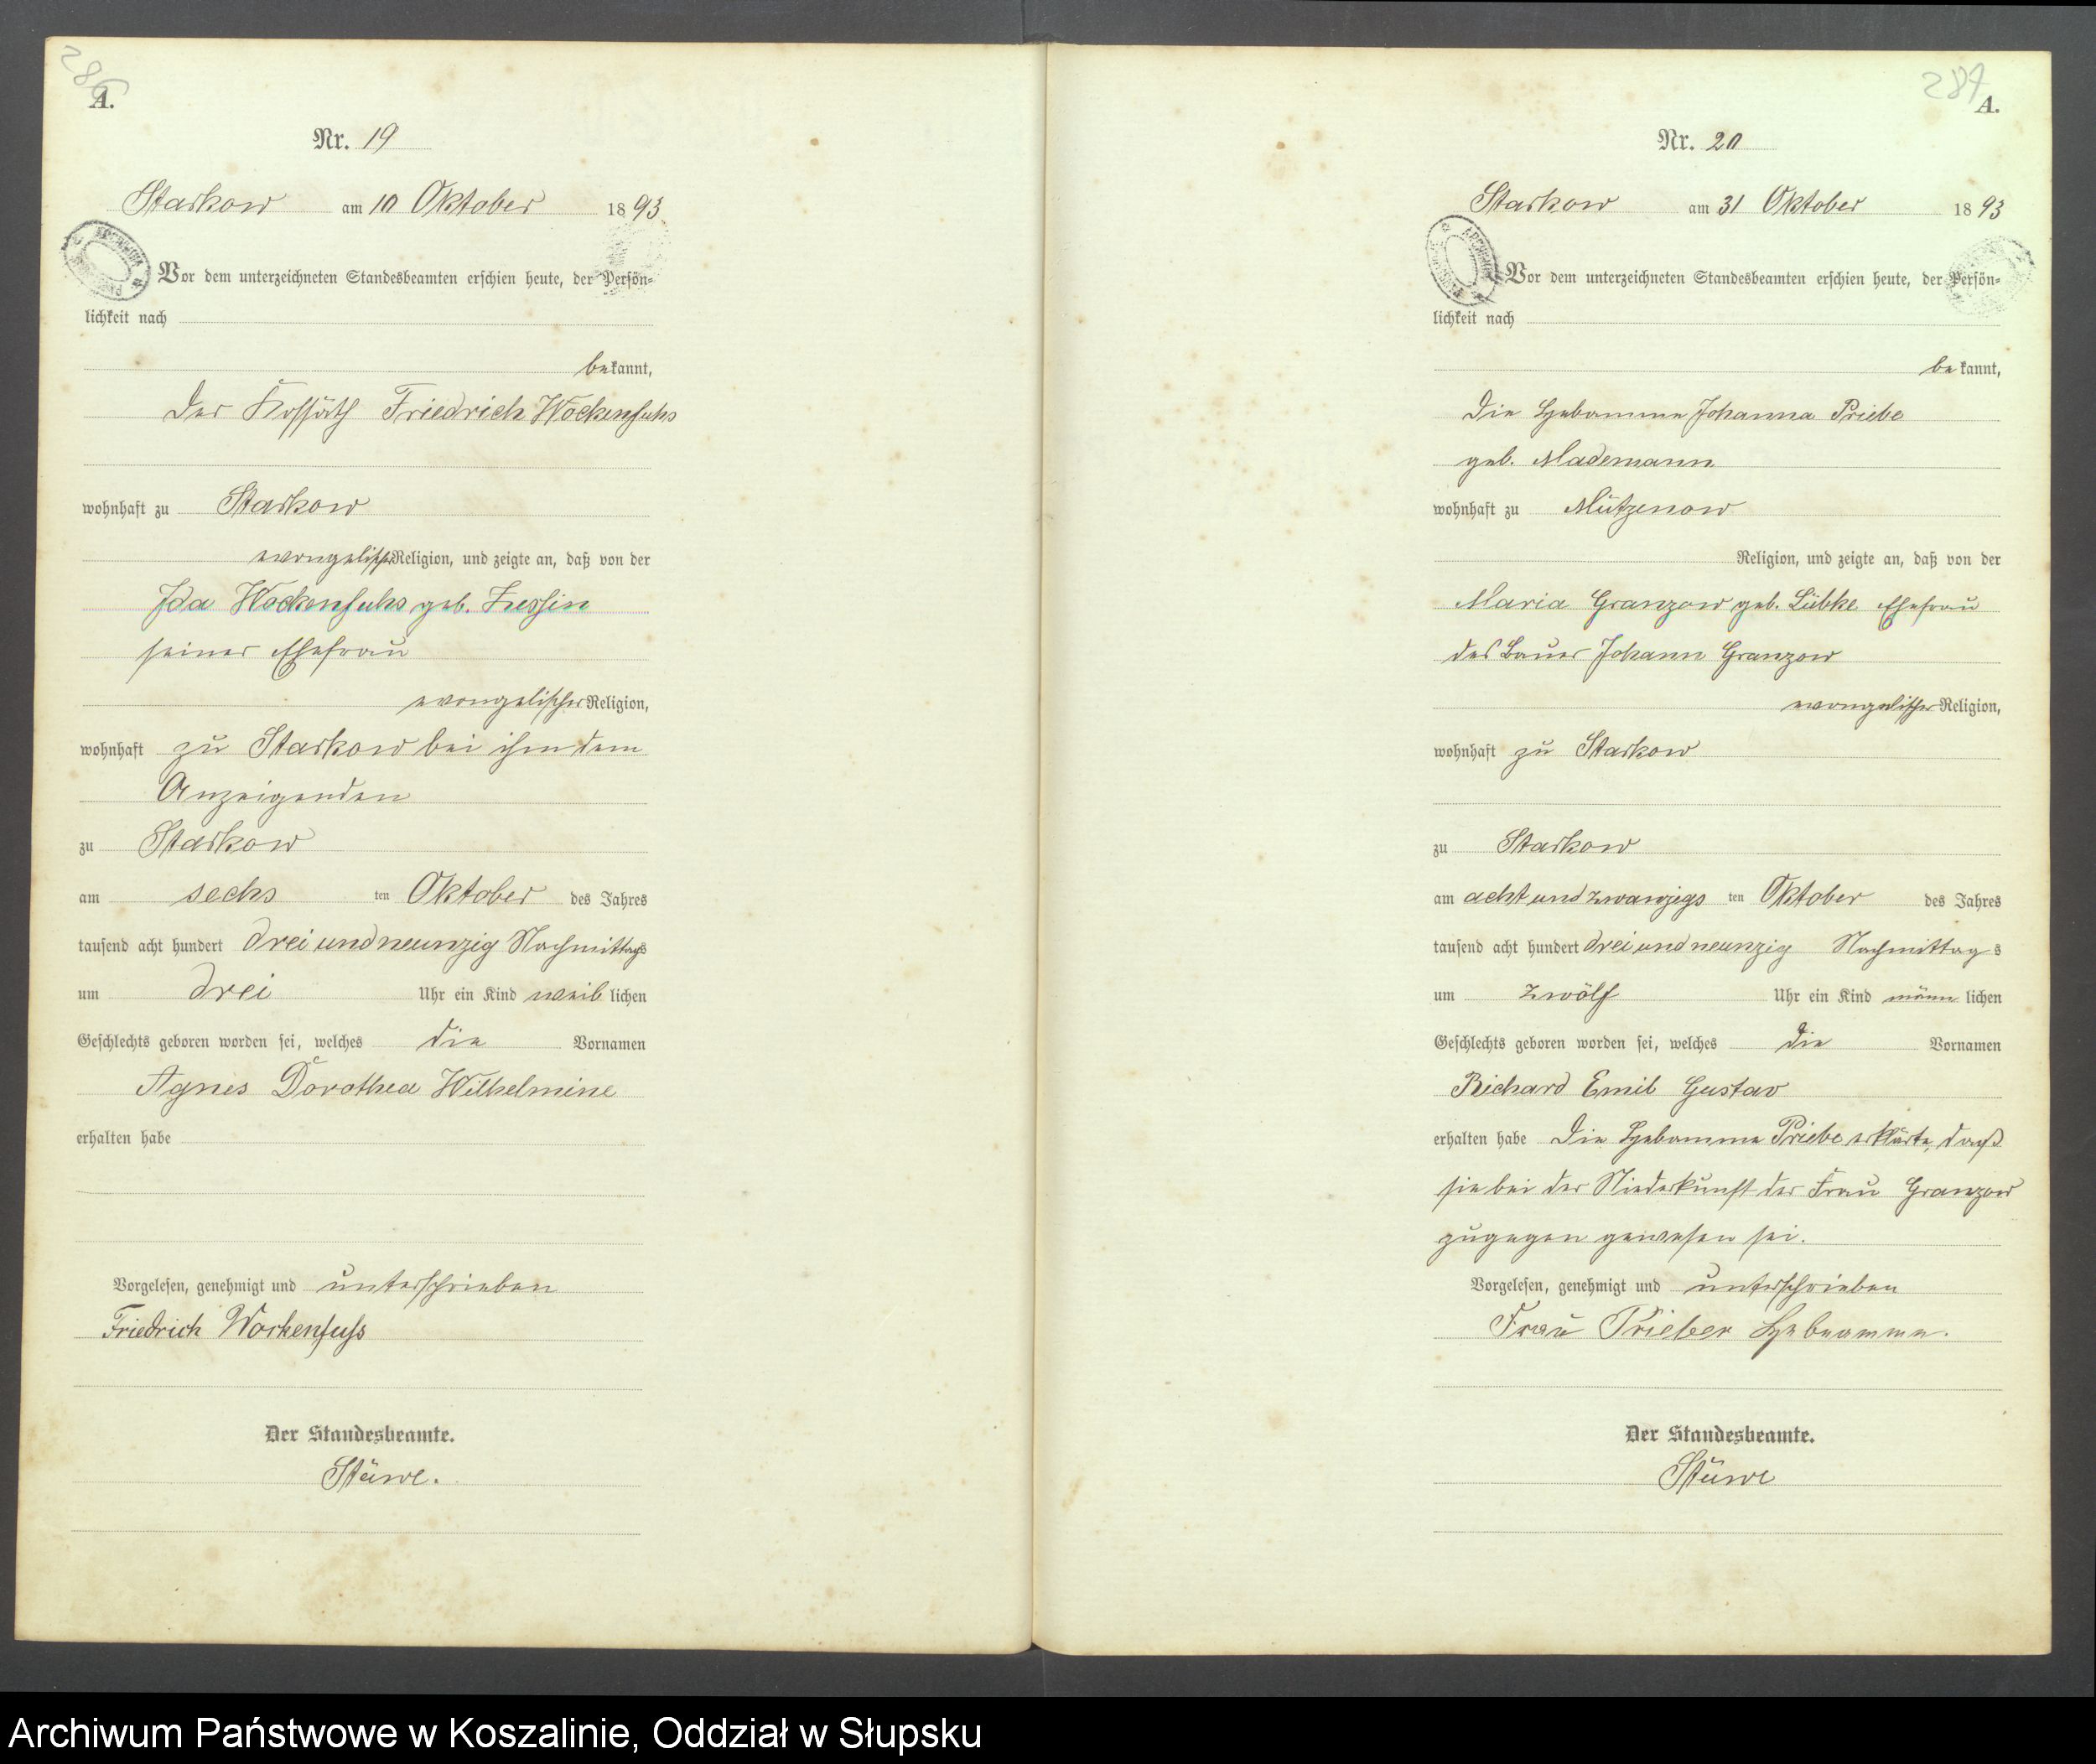 286
A.
Nr. 19
Starkow am 10 Oktober 1893
Vor dem unterzeichneten Standesbeamten erschien heute, der Persön-
lichkeit nach
bekannt,
der Kossäth Friedrich Wockenfuhs
wohnhaft zu Starkow
evangelischer Religion, und zeigte an, daß von der
Ida Wockenfuhs geb. Zessin
seiner Ehefrau
evangelischer Religion,
wohnhaft zu Starkow bei ihm dem
Anzeigenden
zu Starkow
am sechs ten Oktober des Jahres
tausend acht hundert drei und neunzig Nachmittags
um drei Uhr ein Kind weiblichen
Geschlechts geboren worden sei, welches die Vornamen
Agnes Dorothea Wilhelmine
erhalten habe
Vorgelesen, genehmigt und unterschrieben
Friedrich Wockenfuß
Der Standesbeamte.
Stüwe.
287
A.
Nr. 20
Starkow am 31 Oktober 1893
Vor dem unterzeichneten Standesbeamten erschien heute, der Persön-
lichkeit nach
bekannt,
die Hebamme Johanna Priebe
geb. Mademann
wohnhaft zu Mützenow
Religion, und zeigte an, daß von der
Maria Granzow geb. Lübke Ehefrau
des Bauer Johann Granzow
evangelischer Religion,
wohnhaft zu Starkow
zu Starkow
am acht und zwanzigs ten Oktober des Jahres
tausend acht hundert drei und neunzig Nachmittags
um zwölf Uhr ein Kind männlichen
Geschlechts geboren worden sei, welches die Vornamen
Richard Emil Gustav
erhalten habe Die Hebamme Priebe erklärte, daß
sie bei der Niederkunft der Frau Granzow
zugegen gewesen sei.
Vorgelesen, genehmigt und unterschrieben
Frau Prieber Hebeamme.
Der Standesbeamte.
Stüwe
Archiwum Państwowe w Koszalinie, Oddział w Słupsku